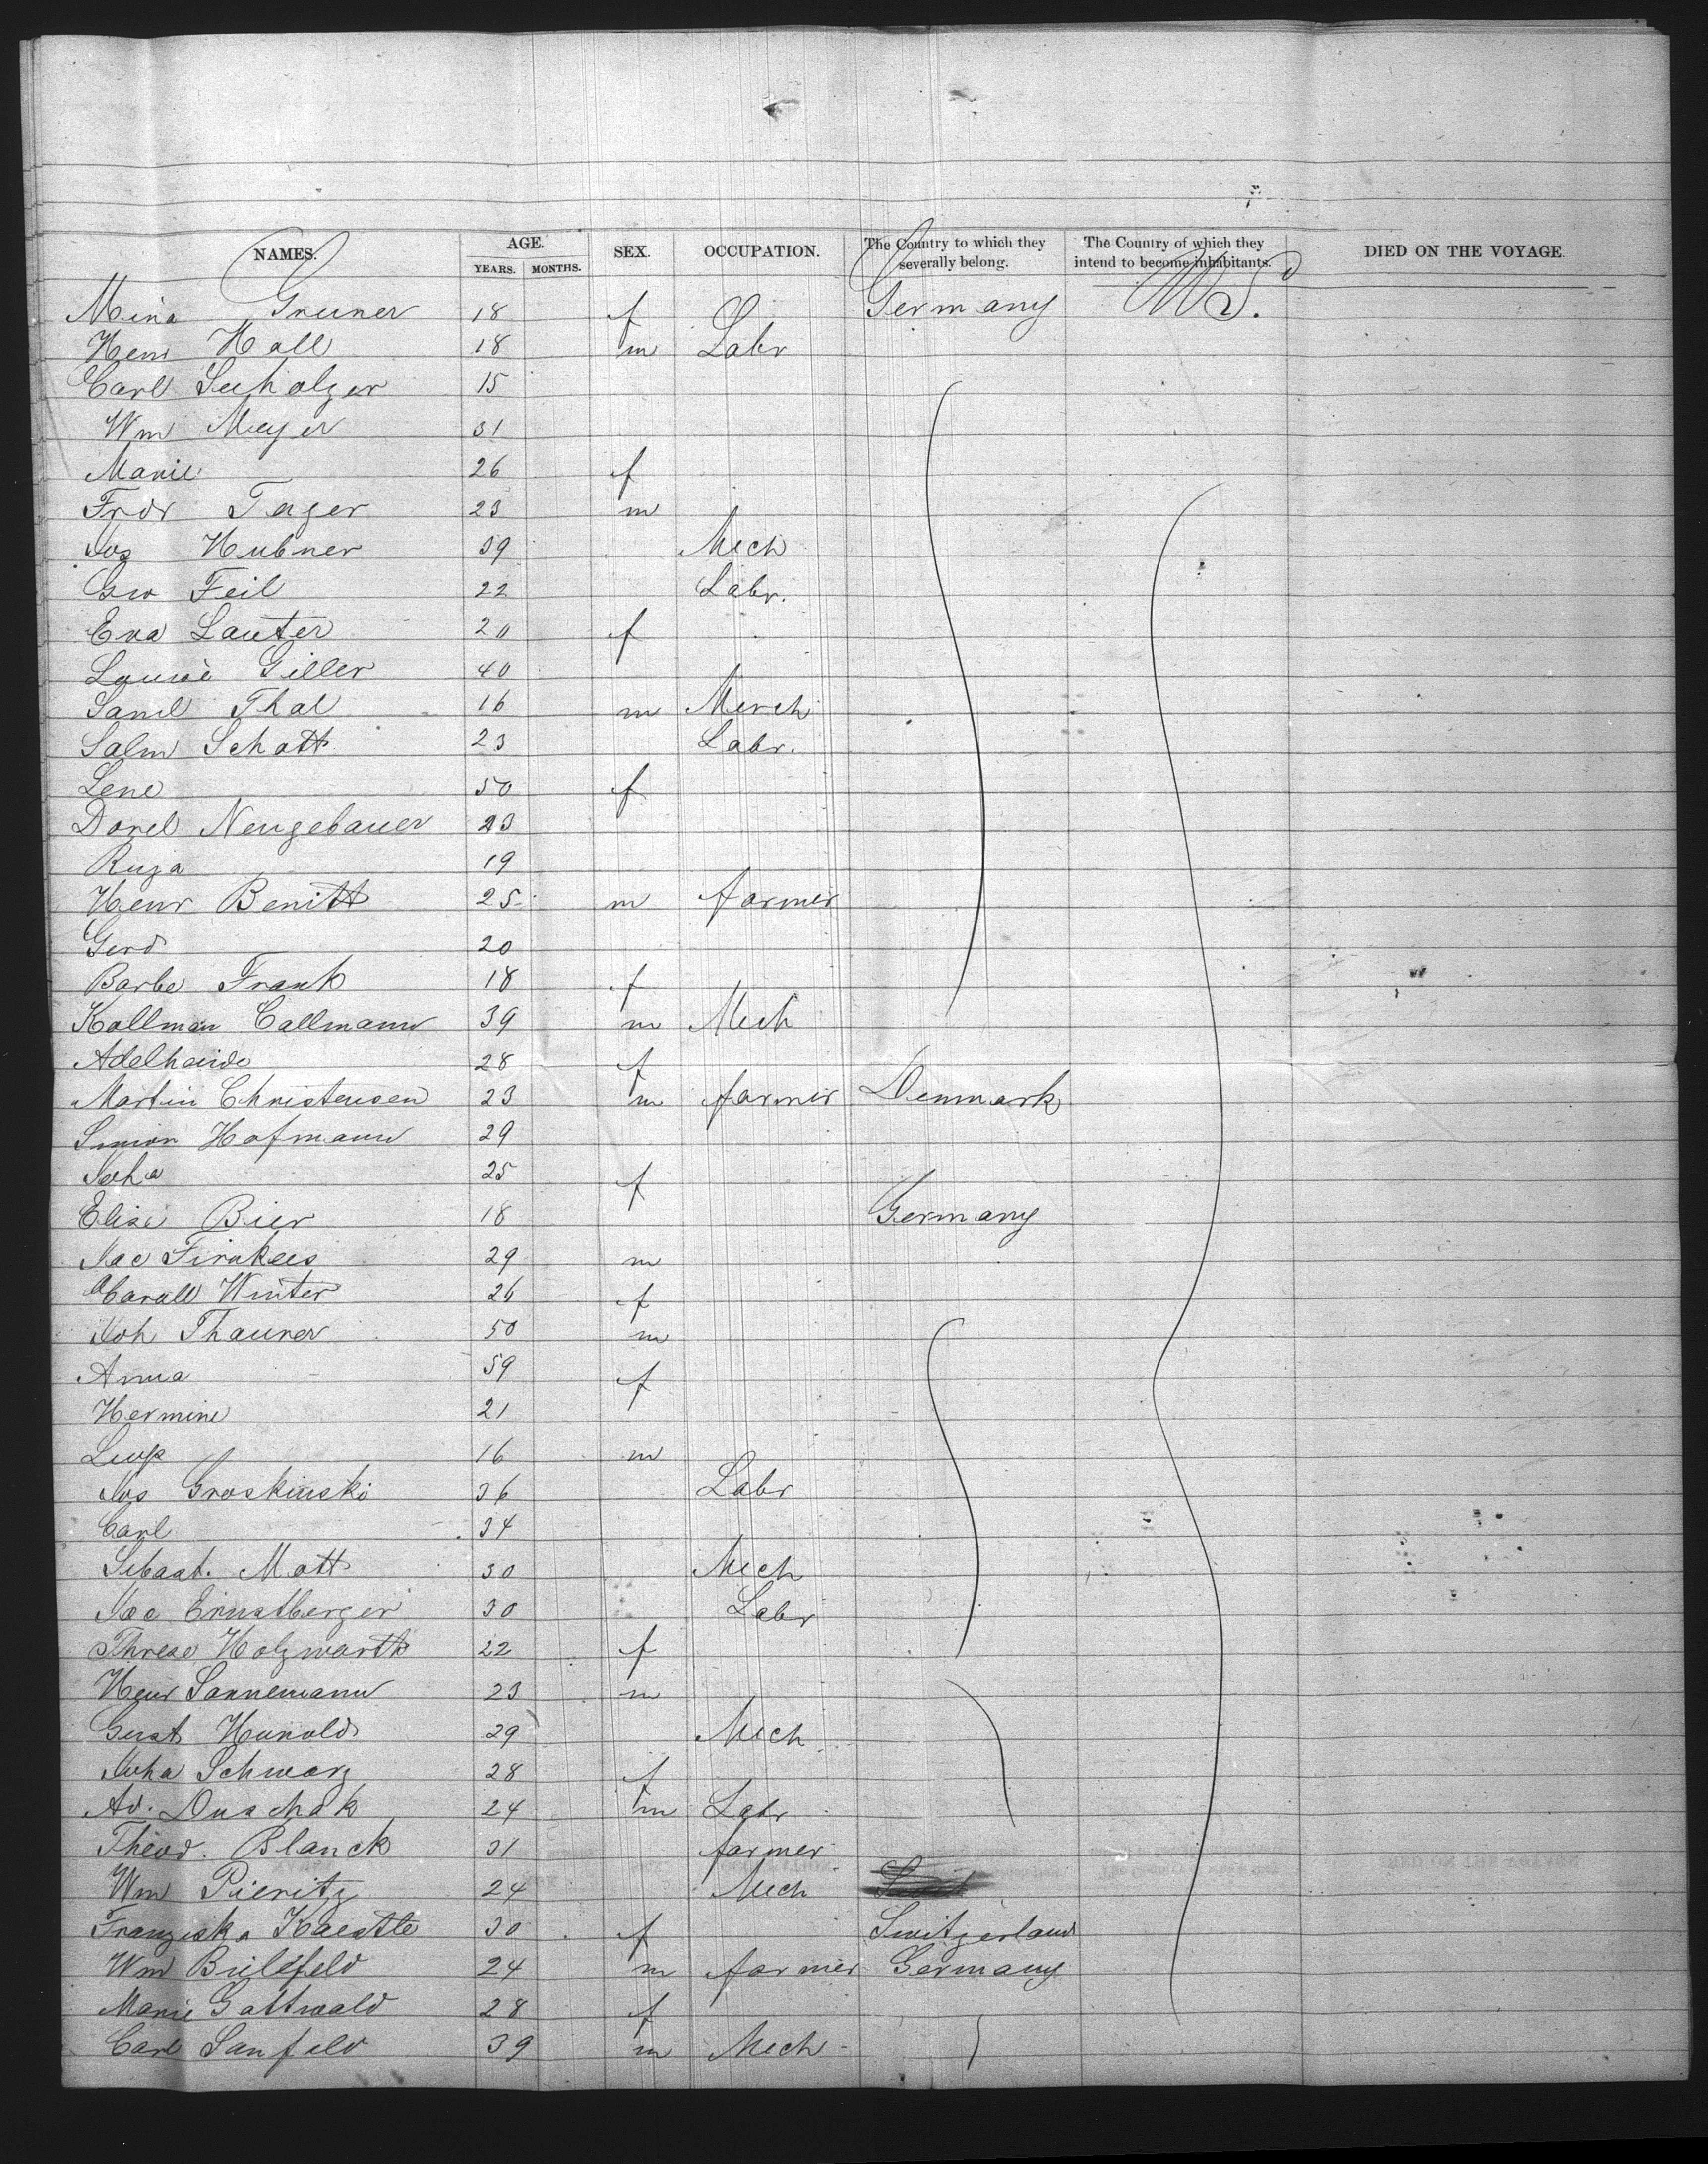 NAMES. AGE. SEX. OCCUPATION. The Country to which they severally belong. The Country of which they intend to become inhabitants. DIED ON THE VOYAGE.
YEARS. MONTHS.
Mina Gruner 18 f Germany U.S.
Henr Hall 18 m Labr
Carl 15
Wm Meyer 31
Marie 26 f
Frdr Tager 23 m
Jos Hubner 39 Mech
Geo Feil 22 Labr.
Eva Lauter 20 f
Louise Giller 40
Saml Thal 16 m Merch
Salm Schott 23 Labr.
Lene 50 f
Dorel Neugebauer 23
Ruza 19
Henr Benitt 25 m farmer
Gerd 20
Barbe Frank 18 f
Kallman Callmann 39 m Mech
Adelheide 28 f
Martin Christensen 23 m farmer Denmark
Simon Hofmann 29
Joha 25 f
Elise Bier 18 Germany
Jac 29 m
Winter 26 f
Joh Thaurer 50 m
Anna 59 f
Hermine 21
Leop 16 m
Jos Groskinski 36 Labr
Carl 34
Sebast. Mott 30 Mech
Jac Ernstberger 30 Labr
Threse Holzwarth 22 f
Henr Sannemann 23 m
Gust Hunold 29 Mech
Joha Schwarz 28 f
Ad. Duschak 24 m Labr
Theod. Blanck 31 farmer
Wm Pieritz 24 Mech
Franziska Kaestle 30 f Switzerland
Wm Bielefeld 24 m farmer Germany
Marie Gottwald 28 f
Carl Sanfeld 39 m Mech